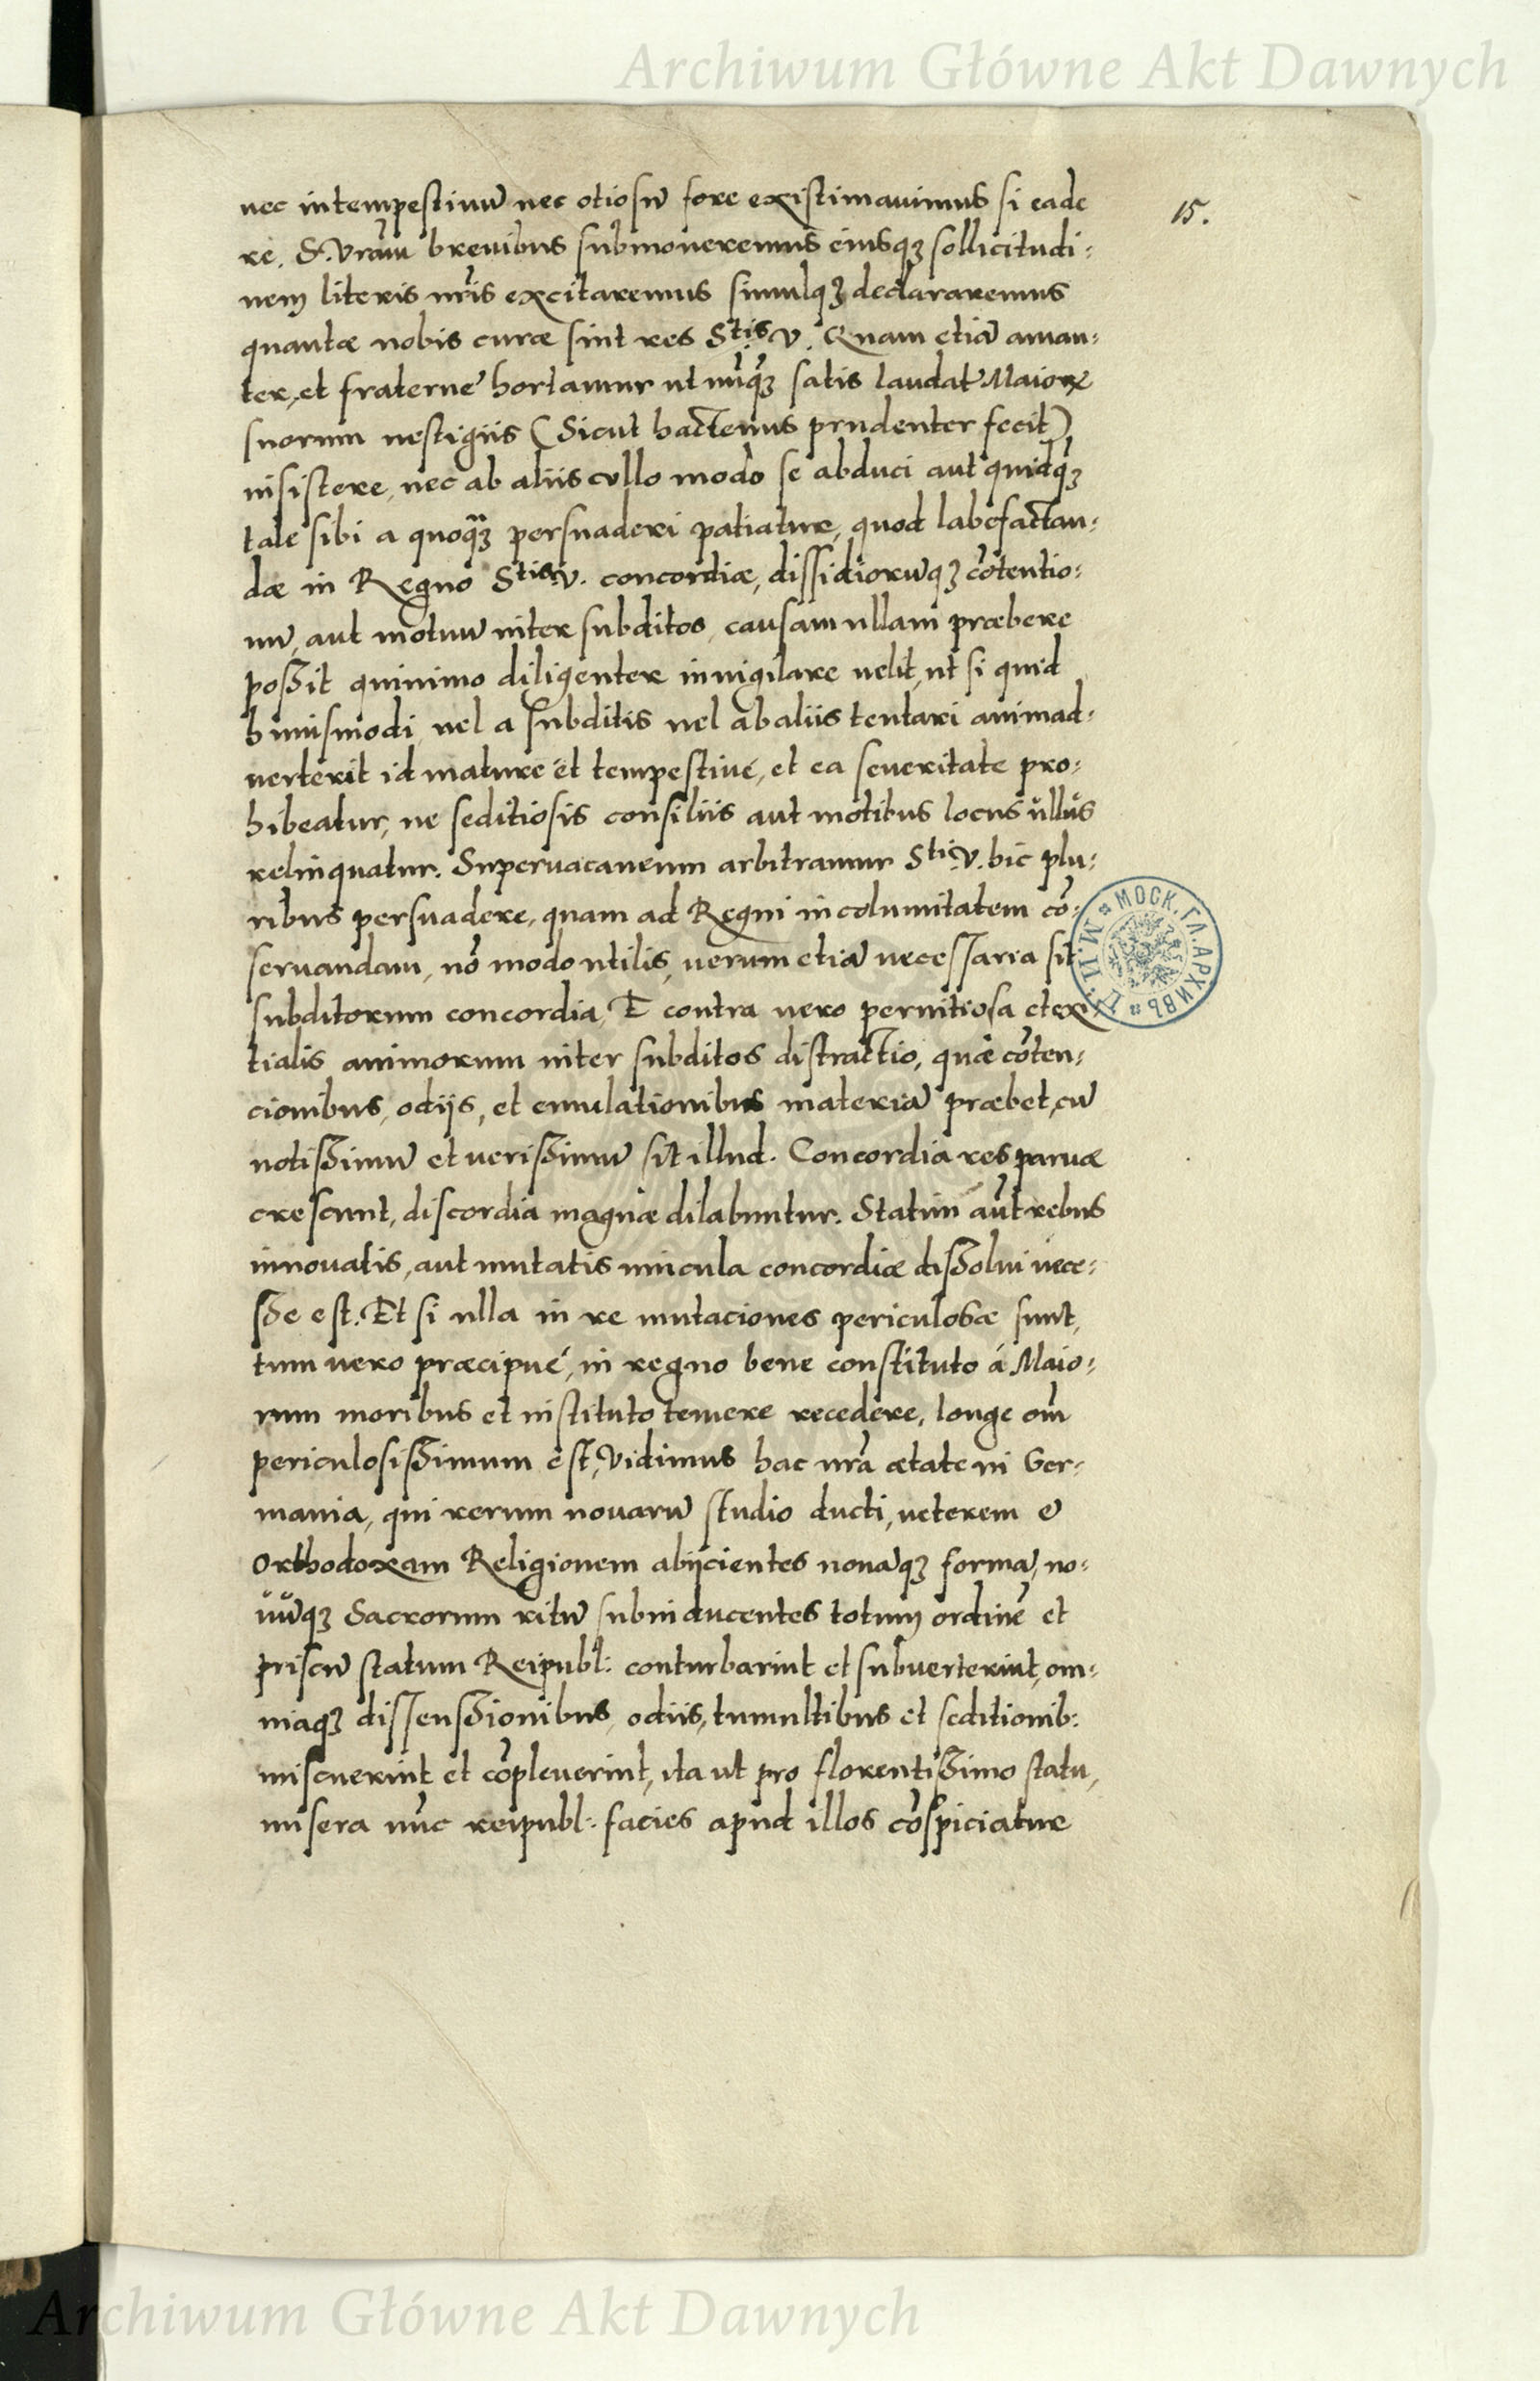 Archiwum Główne Akt Dawnych
15.
nec intempestiuū nec otiosū fore existimauimus si eade
re. S. Vram̄ breuibus submoneremus eiusqȝ sollicitudi:
nem literis nr̄is excitaremus simulqȝ declararemus
quantæ nobis curæ sint res Stis V. Quam etiā aman:
ter, et fraterne hortamur ut nūqȝ satis laudat' Maioꝝ
suorum uestigiis (Sicut hactenus prudenter fecit)
insistere, nec ab aliis vllo modo se abduci aut quidqȝ
tale sibi a quoqȝ persuaderi patiatur, quod labefactan:
dæ in Regno Stis V. concordiæ, dissidiorūqȝ cōtentio:
nū, aut motuū inter subditos, causam ullam præbere
possit quinimo diligenter inuigilare uelit, ut si quid
huiusmodi uel a subditis uel ab aliis tentari animad:
uerterit id mature et tempestiué, et ea seueritate pro:
hibeatur, ne seditiosis consiliis aut motibus locus ŭllŭs
relinquatur. Superuacaneum arbitramur Sti V. hic plu:
ribus persuadere, quam ad Regni incolumitatem cō:
seruandam, nō modo utilis, uerum etiā necessaria sit
subditorum concordia, E contra uero pernitiosa et exi
tialis animorum inter subditos distractio, quæ cōten:
cionibus, odijs, et emulationibus materiā præbet, cū
notissimū et uerissimū sit illud. Concordia res paruæ
crescunt, discordia magnæ dilabuntur. Statim aūt rebus
innouatis, aut mutatis uincula concordiæ dissolui nece:
sse est. Et si ulla in re mutaciones periculosæ sunt,
tum uero præcipué, in regno bene constituto á Maio:
rum moribus et instituto temere recedere, longe om̄
periculosissimum est, Vidimus hac nr̄a ætate in Ger:
mania, qui rerum nouarū studio ducti, ueterem &
Orthodoxam Religionem abijcientes nouāqȝ formā, no:
uūqȝ Sacrorum ritū subinducentes totum ordinē et
priscū statum Reipubl: conturbarint et subuerterint, om:
niaqȝ dissenssionibus, odiis, tumultibus et seditionib:
miscuerint et cōpleuerint, ita ut pro florentissimo statu,
misera nūc reipubl: facies apud illos cōspiciatur
МОСК. ГЛ. АРХИВЪ М. И. Д.
Archiwum Główne Akt Dawnych